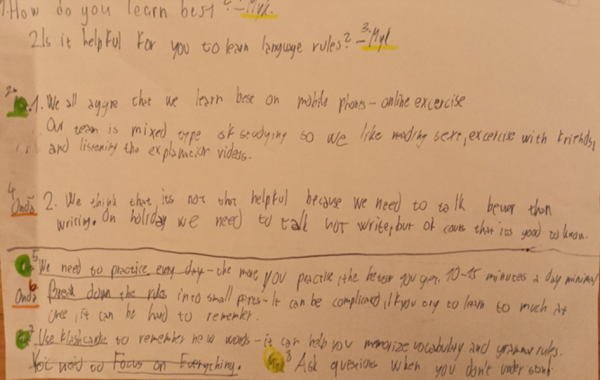 1 How do you learn best? - Myl.
2. Is it helpful for you to learn language rules? - 3. Myl
2.
1. We all aggre that we learn best on mobile phones - online excercise
Our team is mixed type of studying so we like reading text, excercise with friends,
and listening the explanation videos.
4
Ondř 2. We think that its not that helpful because we need to talk bever than
writing. On holiday we need to talk not write, but of cours that its good to know.
5 We need to practice every day - the more you practise, the better you get. 10-15 minutes a day minimal
6
Ondř Break down the rules into small parts - It can be complicated, if you try to learn to much at
one, it can be hard to remember.
7 Use flashcards to remember new words - it can help you memorize vocabulary and grammar rules.
You need to Focus on Everything. 8 Ask questions when you don't understand.